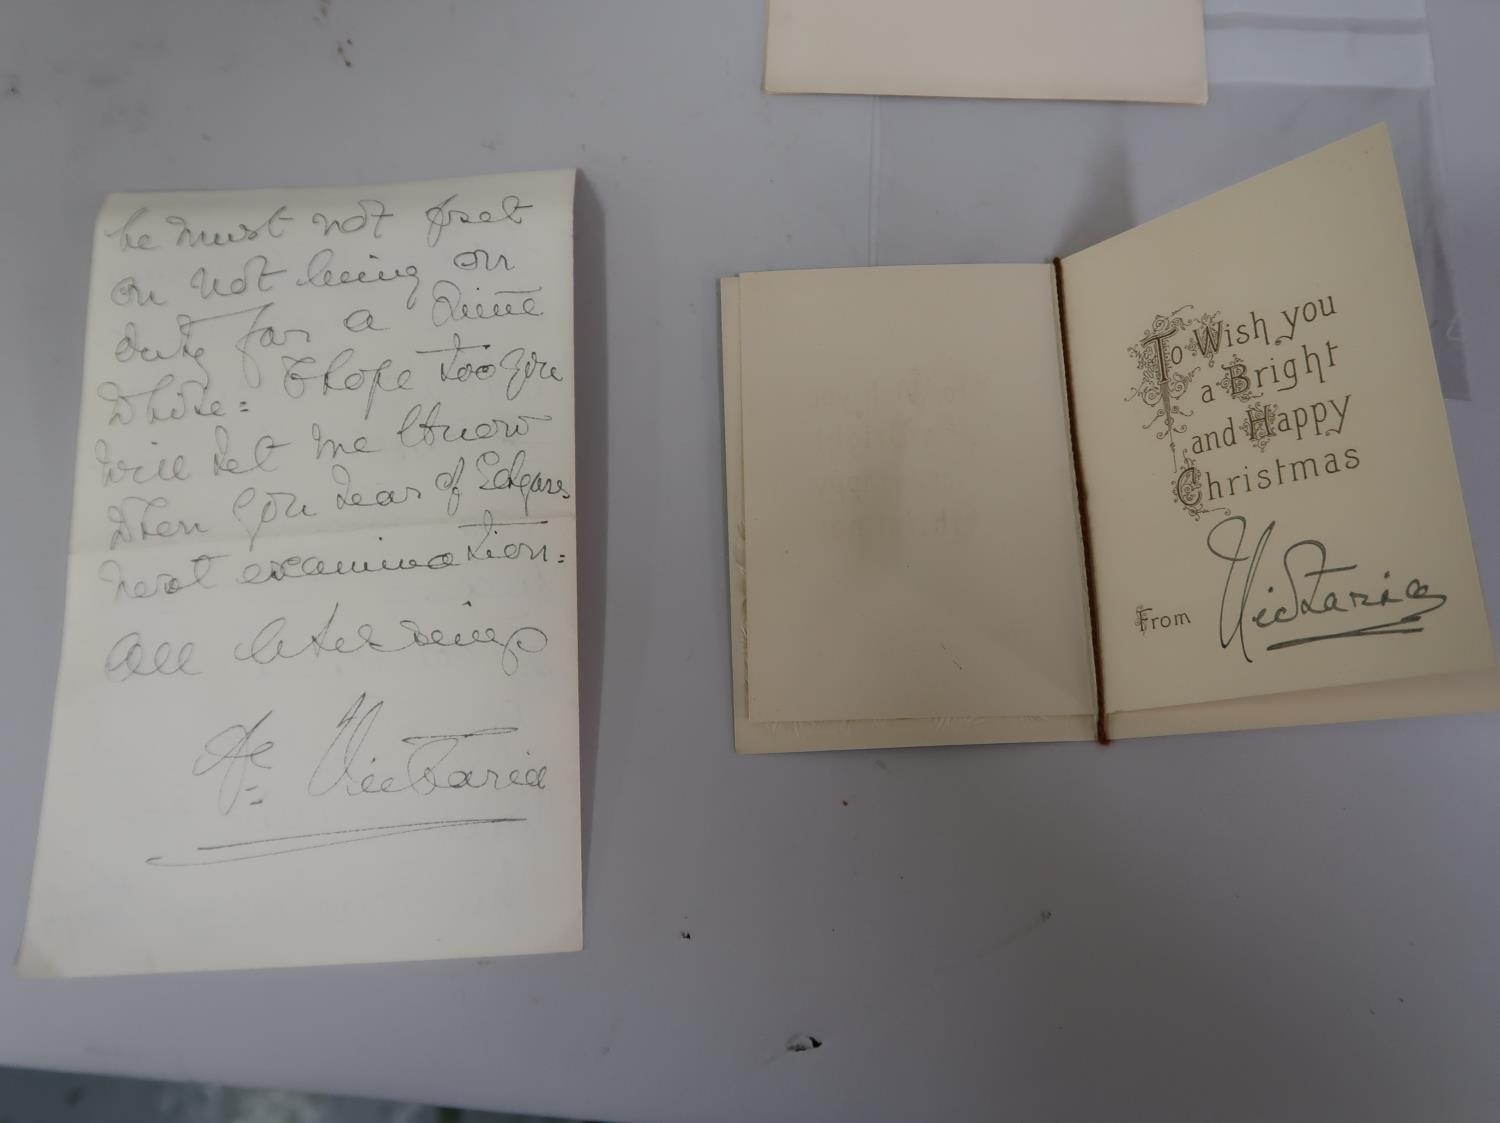 he must not fret
on not being on
duty for a time
while = I hope too you
will let me know
when you hear of Edgars
next examination =
All blessings
Victoria
To Wish you
a Bright
and Happy
Christmas
From Victoria